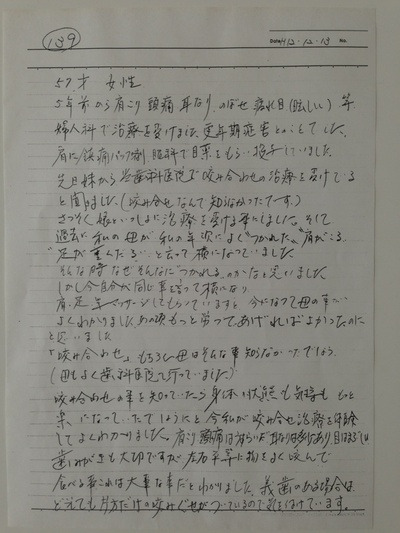 139
Date H12・12・13 No.
57才 女性
5年前から肩こり 頭痛 耳なり のぼせ 疲れ目(眩しい) 等
婦人科で治療を受けました 更年期症害とのことでした。
肩に鎮痛パップ剤 眼科で目薬をもらい 様子していました。
先日妹から 歯科医院で咬み合わせの治療を受けている
と聞きました(咬み合せなんて知らなかったです)
さっそく 娘といっしょに治療を受ける事にしました。そして
過去に 私の母が 私の年頃によく"つかれた" "肩がこる"
"足が重くたるい" と言って横になっていました
そんな時 なぜそんなに"つかれる"のかなと思いました
しかし今自分が同じ事を言って横になり
肩 足 をマッサージしてもらっていますと 今になって母の事が
よくわかりました あの頃もっと労って あげればよかったのに
と思いました
"咬み合わせ" もちろん母はそんな事知らなかったでしょう
(母もよく歯科医院へ行っていました)
咬み合わせの事を知っていたら 身体の状態も気持も もっと
楽 になっていたでしょうにと今私が咬み合せ治療を体験
してよくわかりました。肩こり 頭痛は
歯みがきも大切ですが 左右平等に物をよく咬んで
食べる事 これは大事な事だとわかりました。義歯のある場合は
どうしても片方だけの咬みぐせがついているので気を付けています。